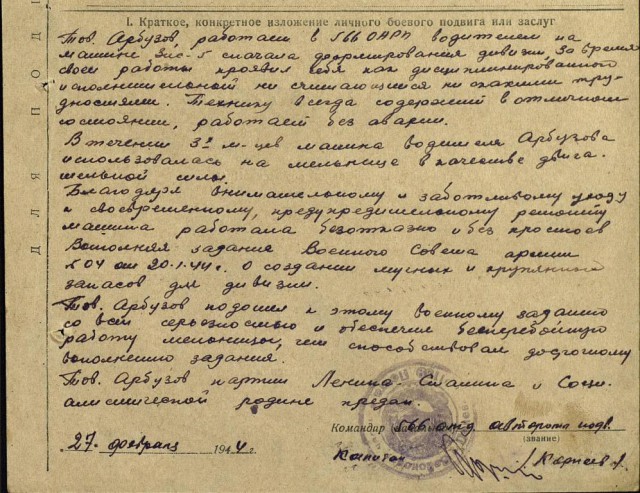 I. Краткое, конкретное изложение личного боевого подвига или заслуг
Тов. Арбузов работает в 566 ОАРП водителем на
машине Зис-5 сначала формирования дивизии. За время
своей работы проявил себя как дисциплинированной
исполнительной ни считающийся ни скакими тру-
дностями. Технику всегда содержит в отличном
состоянии, работает без аварии.
В течении 3х м-цев машина водителя Арбузова
использовалась на мельнице в качестве двига-
тельной силы.
Благодаря внимательному и заботливому уходу
и своевременному, предупредительному ремонту
машина работала безотказно и без простоев
Выполняя задание Военного Совета армии
№ 04 от 20.1.44 г. о создании мучных и крупянных
запасов для дивизии.
Тов. Арбузов подошел к этому военному заданию
со всей серьезностью и обеспечил бесперебойную
работу мельницы, чем способствовал досрочному
выполнению задания.
Тов. Арбузов партии Ленина-Сталина и Соци-
алистической родине предан.
Командир 566 отд. автороты подв.
(звание)
27 февраля 1944 г.
Капитан
ДЛЯ ПОД